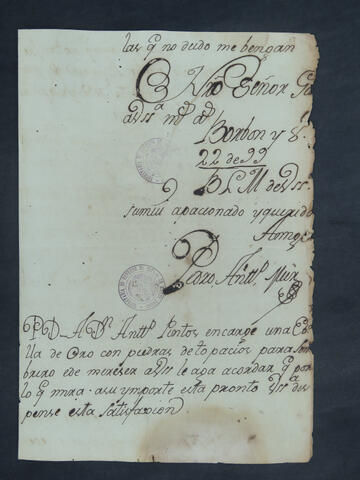 las q no dudo me bengan
Nrô Señor
a Vss.ª m.ˢ a.ˢ
Borbon y
22 de 99
B L M de Vss
su mui apacionado y querido
Amigo
Pedro Antt.º Muñ
PD A D.ⁿ Antt.º Pintos encarge una
lla de Oro con piedras de topacios para som
brero e de mereser a Vss le aga acordar q por
lo q mira asu ymporte esta pronto Vss.ª dis
pense esta satisfaxion